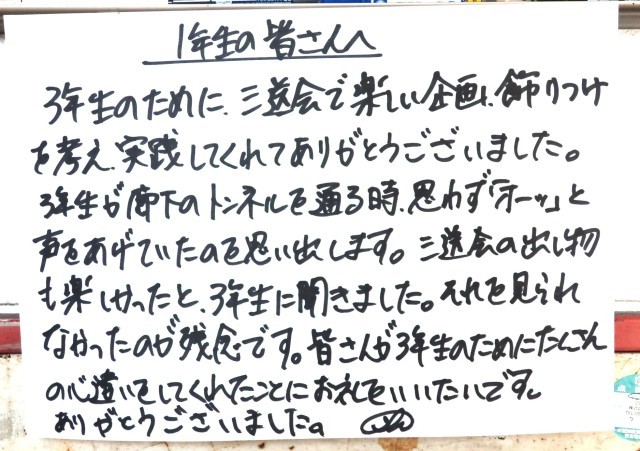 1年生の皆さんへ
3年生のために、三送会で楽しい企画、飾りつけ
を考え、実践してくれてありがとうございました。
3年生が廊下のトンネルを通る時、思わず「オーッ」と
声をあげていたのを思い出します。三送会の出し物
も楽しかったと、3年生に聞きました。それを見られ
なかったのが残念です。皆さんが3年生のためにたくさん
の心遣いをしてくれたことにお礼をいいたいです。
ありがとうございました。